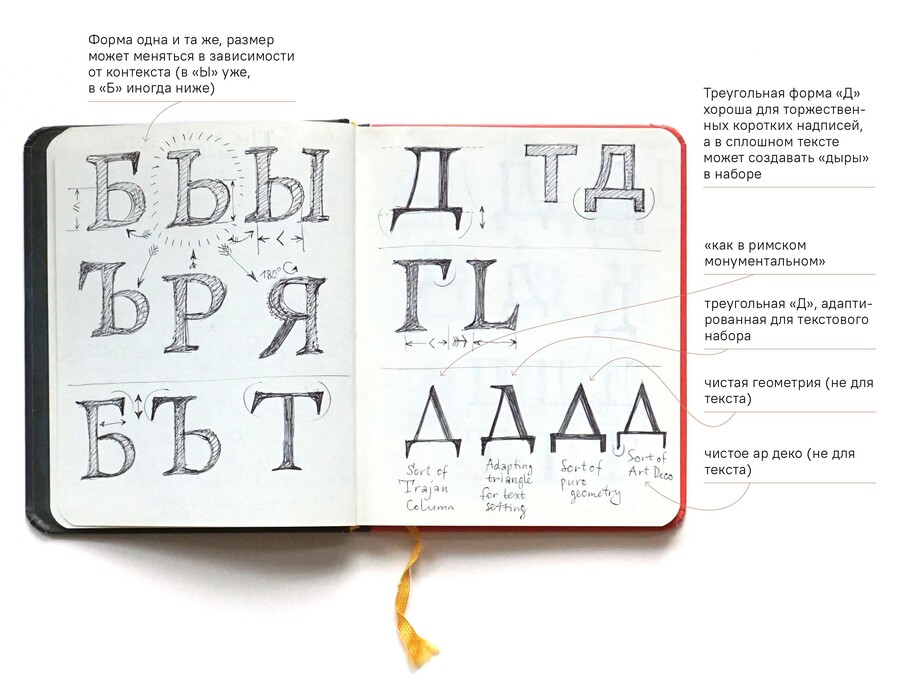 Форма одна и та же, размер
может меняться в зависимости
от контекста (в «Ы» уже,
в «Б» иногда ниже)
Треугольная форма «Д»
хороша для торжествен-
ных коротких надписей,
а в сплошном тексте
может создавать «дыры»
в наборе
«как в римском
монументальном»
треугольная «Д», адапти-
рованная для текстового
набора
чистая геометрия (не для
текста)
чистое ар деко (не для
текста)
Б Ь Ы
Ъ Р Я
180°
Б Ъ Т
Д Т Д
Г L
Д Д Д Д
Sort of
Trajan
Column
Adapting
triangle
for text
setting
Sort of
pure
geometry
Sort of
Art Deco